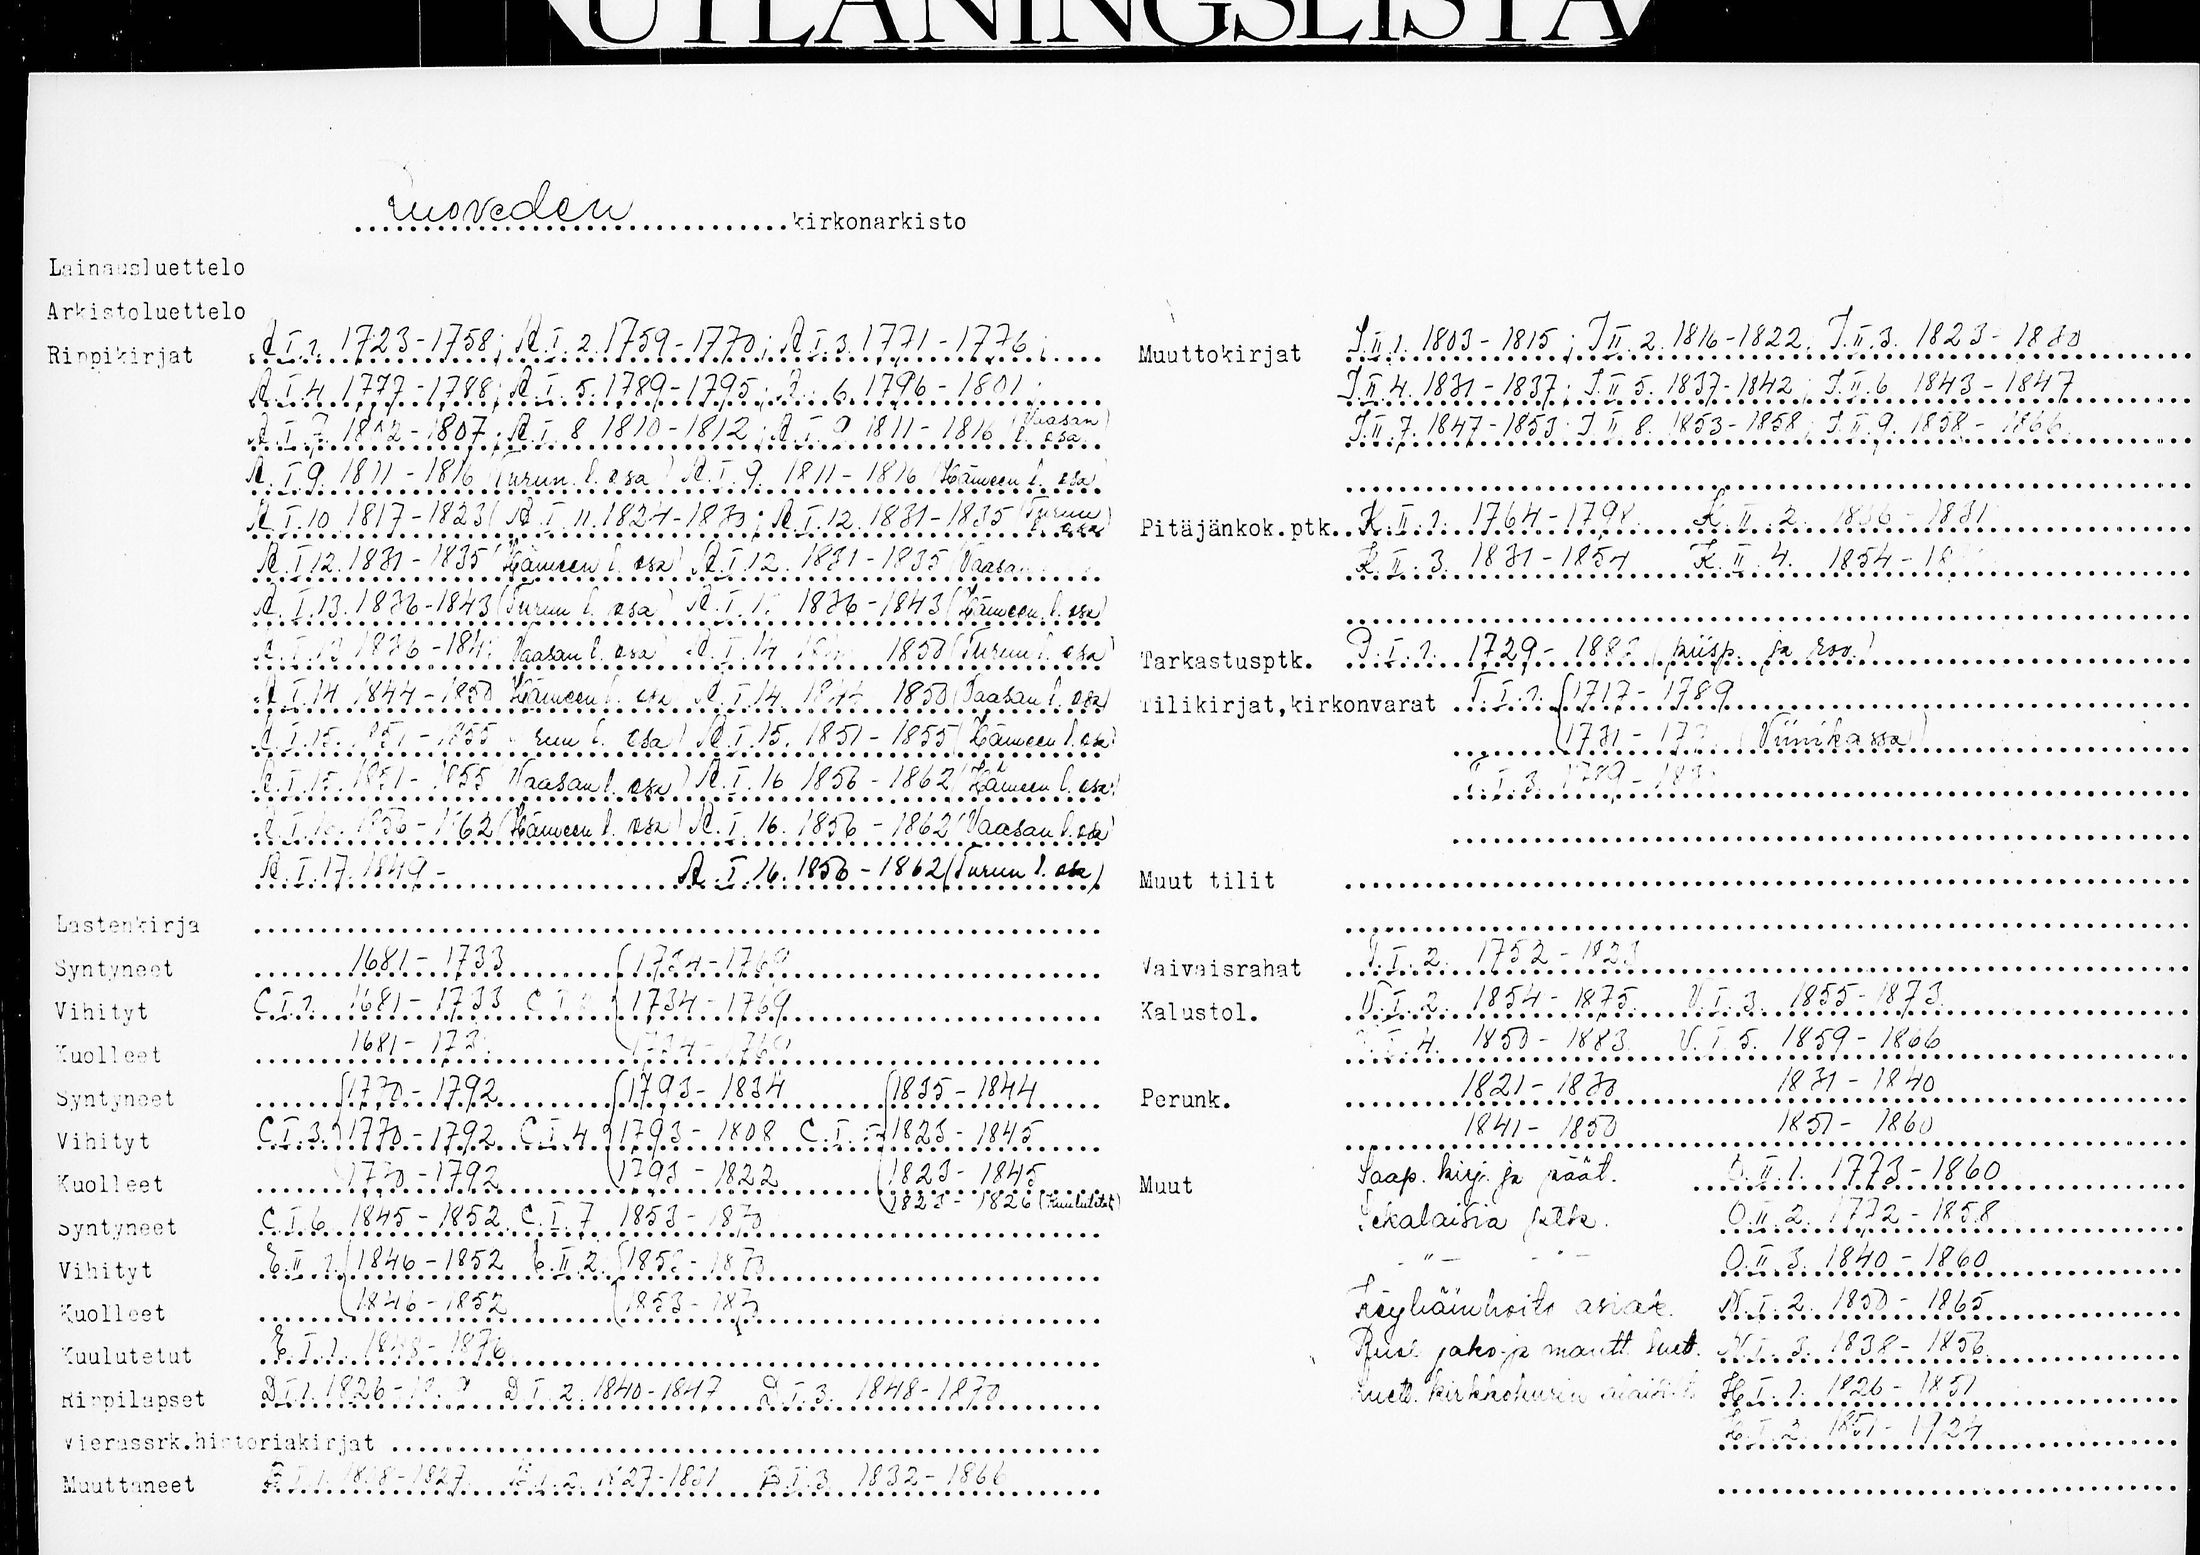 UTLÅNINGSLISTA
Ruoveden kirkonarkisto
Lainausluettelo
Arkistoluettelo
Rippikirjat A.I.1. 1723-1758; A.I.2. 1759-1770; A.I.3. 1771-1776;
A.I.4. 1777-1788; A.I.5. 1789-1795; 6. 1796-1801;
A.I.7. 1802-1807; A.I.8 1810-1812; A.I.9 1811-1816 (Vaasan l. osa)
A.I.9. 1811-1816 (Turun l. osa) A.I.9. 1811-1816 (Hämeen l. osa)
A.I.10. 1817-1823; A.I.11. 1824-1830; A.I.12. 1831-1835 (Turun l. osa)
A.I.12. 1831-1835 (Hämeen l. osa) A.I.12. 1831-1835 (Vaasan
A.I.13. 1836-1843 (Turun l. osa) A.I.1 1836-1843 (Hämeen l. osa)
A.I.13 1836-184 Vaasan l. osa) A.I.14 1850 (Turun l. osa)
A.I.14 1844-1850 Hämeen l. osa A.I.14. 1844 1850 (Vaasan l. osa)
A.I.15. 1851-1855 run l. osa) A.I.15. 1851-1855 (Hämeen l. osa)
A.I.15. 1851-1855 (Vaasan l. osa) A.I.16 1856-1862 (Hämeen l. osa)
A.I.16. 1856-1862 (Hämeen l. osa) A.I.16. 1856-1862 (Vaasan l. osa)
A.I.17. 1849- A.I.16. 1856-1862 (Turun l. osa)
Lastenkirja
Syntyneet 1681-1733 1734-1769
Vihityt C.I.1. 1681-1733 C.I.2 1734-1769
Kuolleet 1681-173 1734-1769
Syntyneet 1770-1792 1793-1834 1835-1844
Vihityt C.I.3. 1770-1792 C.I.4 1793-1808 C.I.5 1823-1845
Kuolleet 1770-1792 1793-1822 1823-1845
1823-1826 (Kuulutetut)
Syntyneet C.I.6. 1845-1852. C.I.7 1853-1870
Vihityt E.II.1. 1846-1852 E.II.2. 1853-1873
Kuolleet 1846-1852 1853-187
Kuulutetut E.I.1. 1848-1876
Rippilapset D.I.1. 1826- D.I.2. 1840-1847 D.I.3. 1848-1870
Vierassrk.historiakirjat
Muuttaneet B.I.1. 1808-1827. B.I.2. 1827-1831 B.I.3. 1832-1866
Muuttokirjat J.II.1. 1803-1815; J.II.2. 1816-1822. J.II.3. 1823-1830
J.II.4. 1831-1837; J.II.5. 1837-1842; J.II.6 1843-1847
J.II.7. 1847-1853; J.II.8. 1853-1858; J.II.9. 1858-1866.
Pitäjänkok.ptk. K.II.1. 1764-1798. K.II.2. 1831
K.II.3. 1831-1854 K.II.4. 1854-18
Tarkastusptk. P.I.1. 1729- (piisp. ja rov.)
Tilikirjat,kirkonvarat T.I.1. 1717-1789
1731-177 (Viinikassa)
T.I.3. 1789-183
Muut tilit
Vaivaisrahat T.I.2. 1752-1823
Kalustol. V.I.2. 1854-1875. V.I.3. 1855-1873.
V.I.4. 1850-1883. V.I.5. 1859-1866
Perunk. 1821-1830 1831-1840
1841-1850 1851-1860
Muut Saap. kirj. ja päät. O.II.1. 1773-1860
Sekalaisia O.II.2. 1772-1858
-"- -"- O.II.3. 1840-1860
Köyhäinhoito asiak. N.I.2. 1850-1865
Ruse jako-ja mantt. luet. N.I.3. 1838-1856
Luett. kirkkokurin alais. H.I.1. 1826-1851
H.I.2. 1851-1924